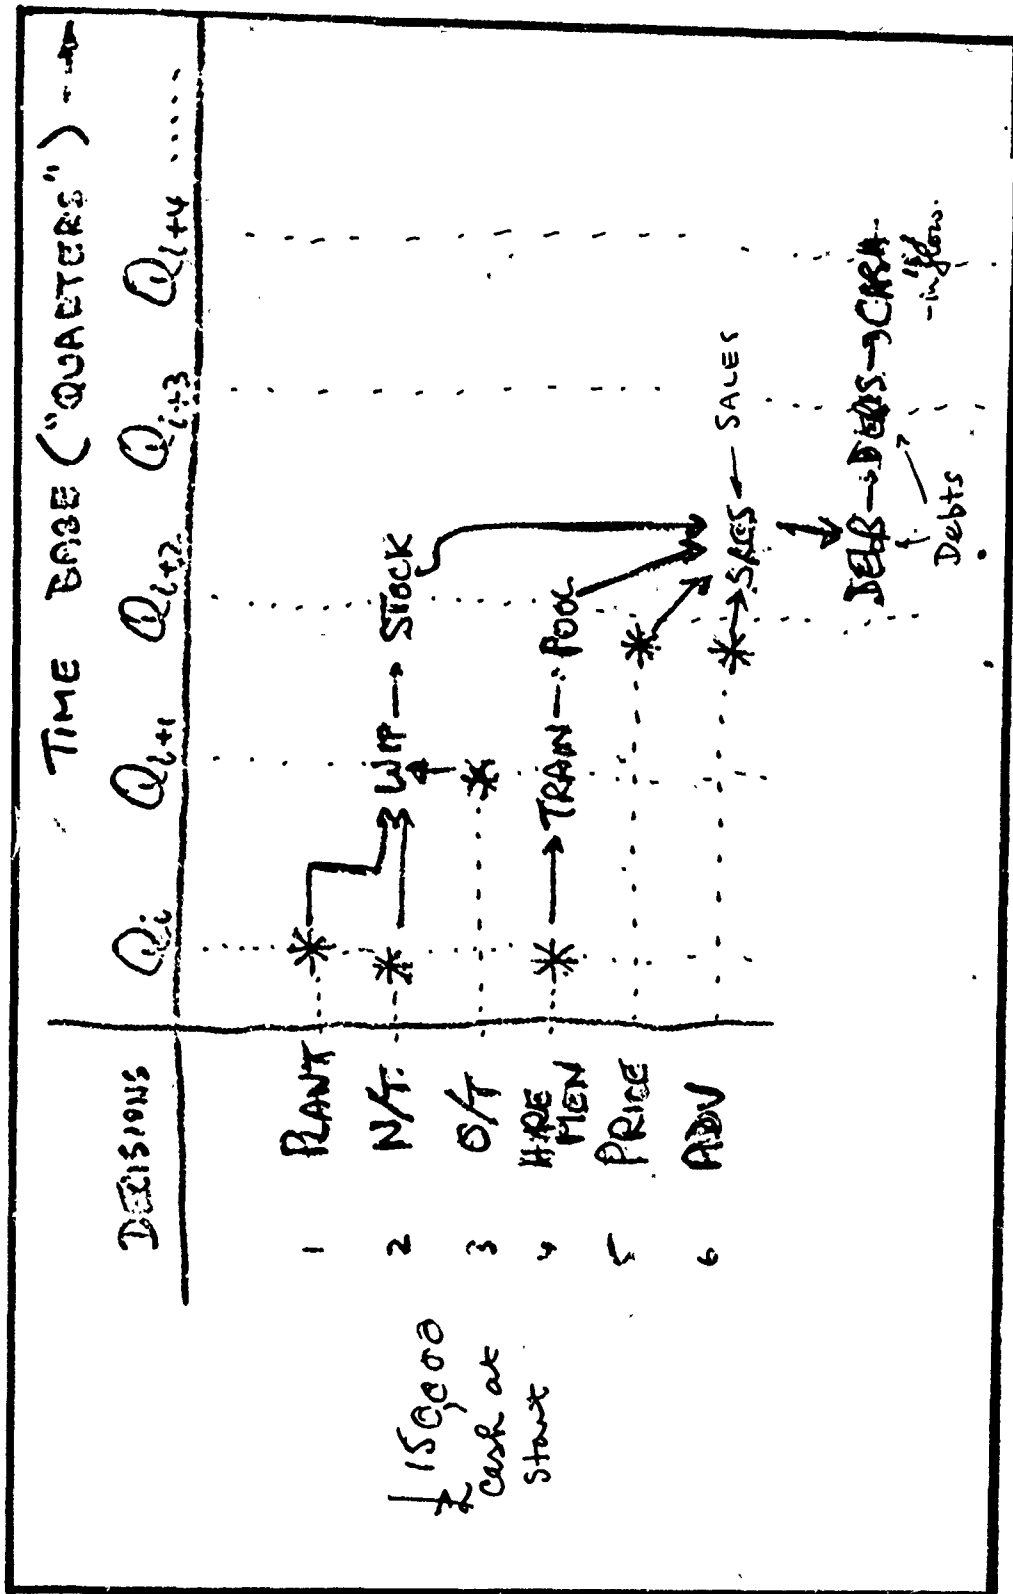 TIME BASE ("QUARTERS") --→
DECISIONS Qi Qi+1 Qi+2 Qi+3 Qi+4 .....
1 PLANT
2 N/T. WIP → STOCK
3 O/T
4 HIRE MEN → TRAIN → POOL
5 PRICE
6 ADV → SALES ← SALES
DEBS → DEBS → CASH
-inflow.
Debts
£150,000
cash at
start